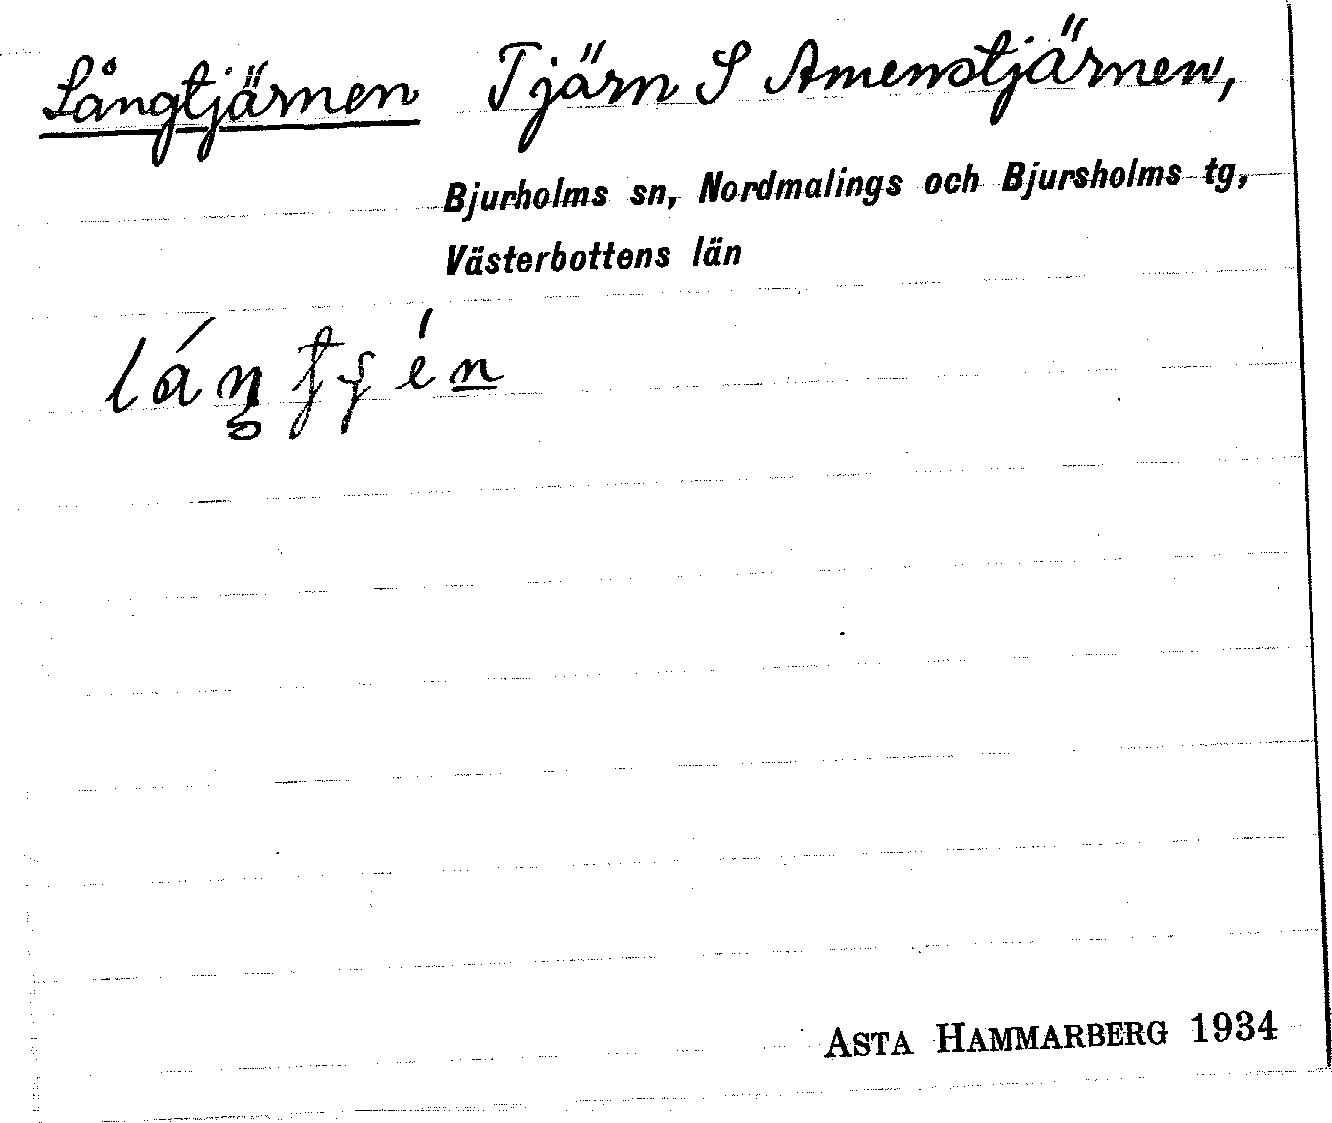 Långtjärnen Tjärn S Amenstjärnen,
Bjurholms sn, Nordmalings och Bjursholms tg,
Västerbottens län
ASTA HAMMARBERG 1934